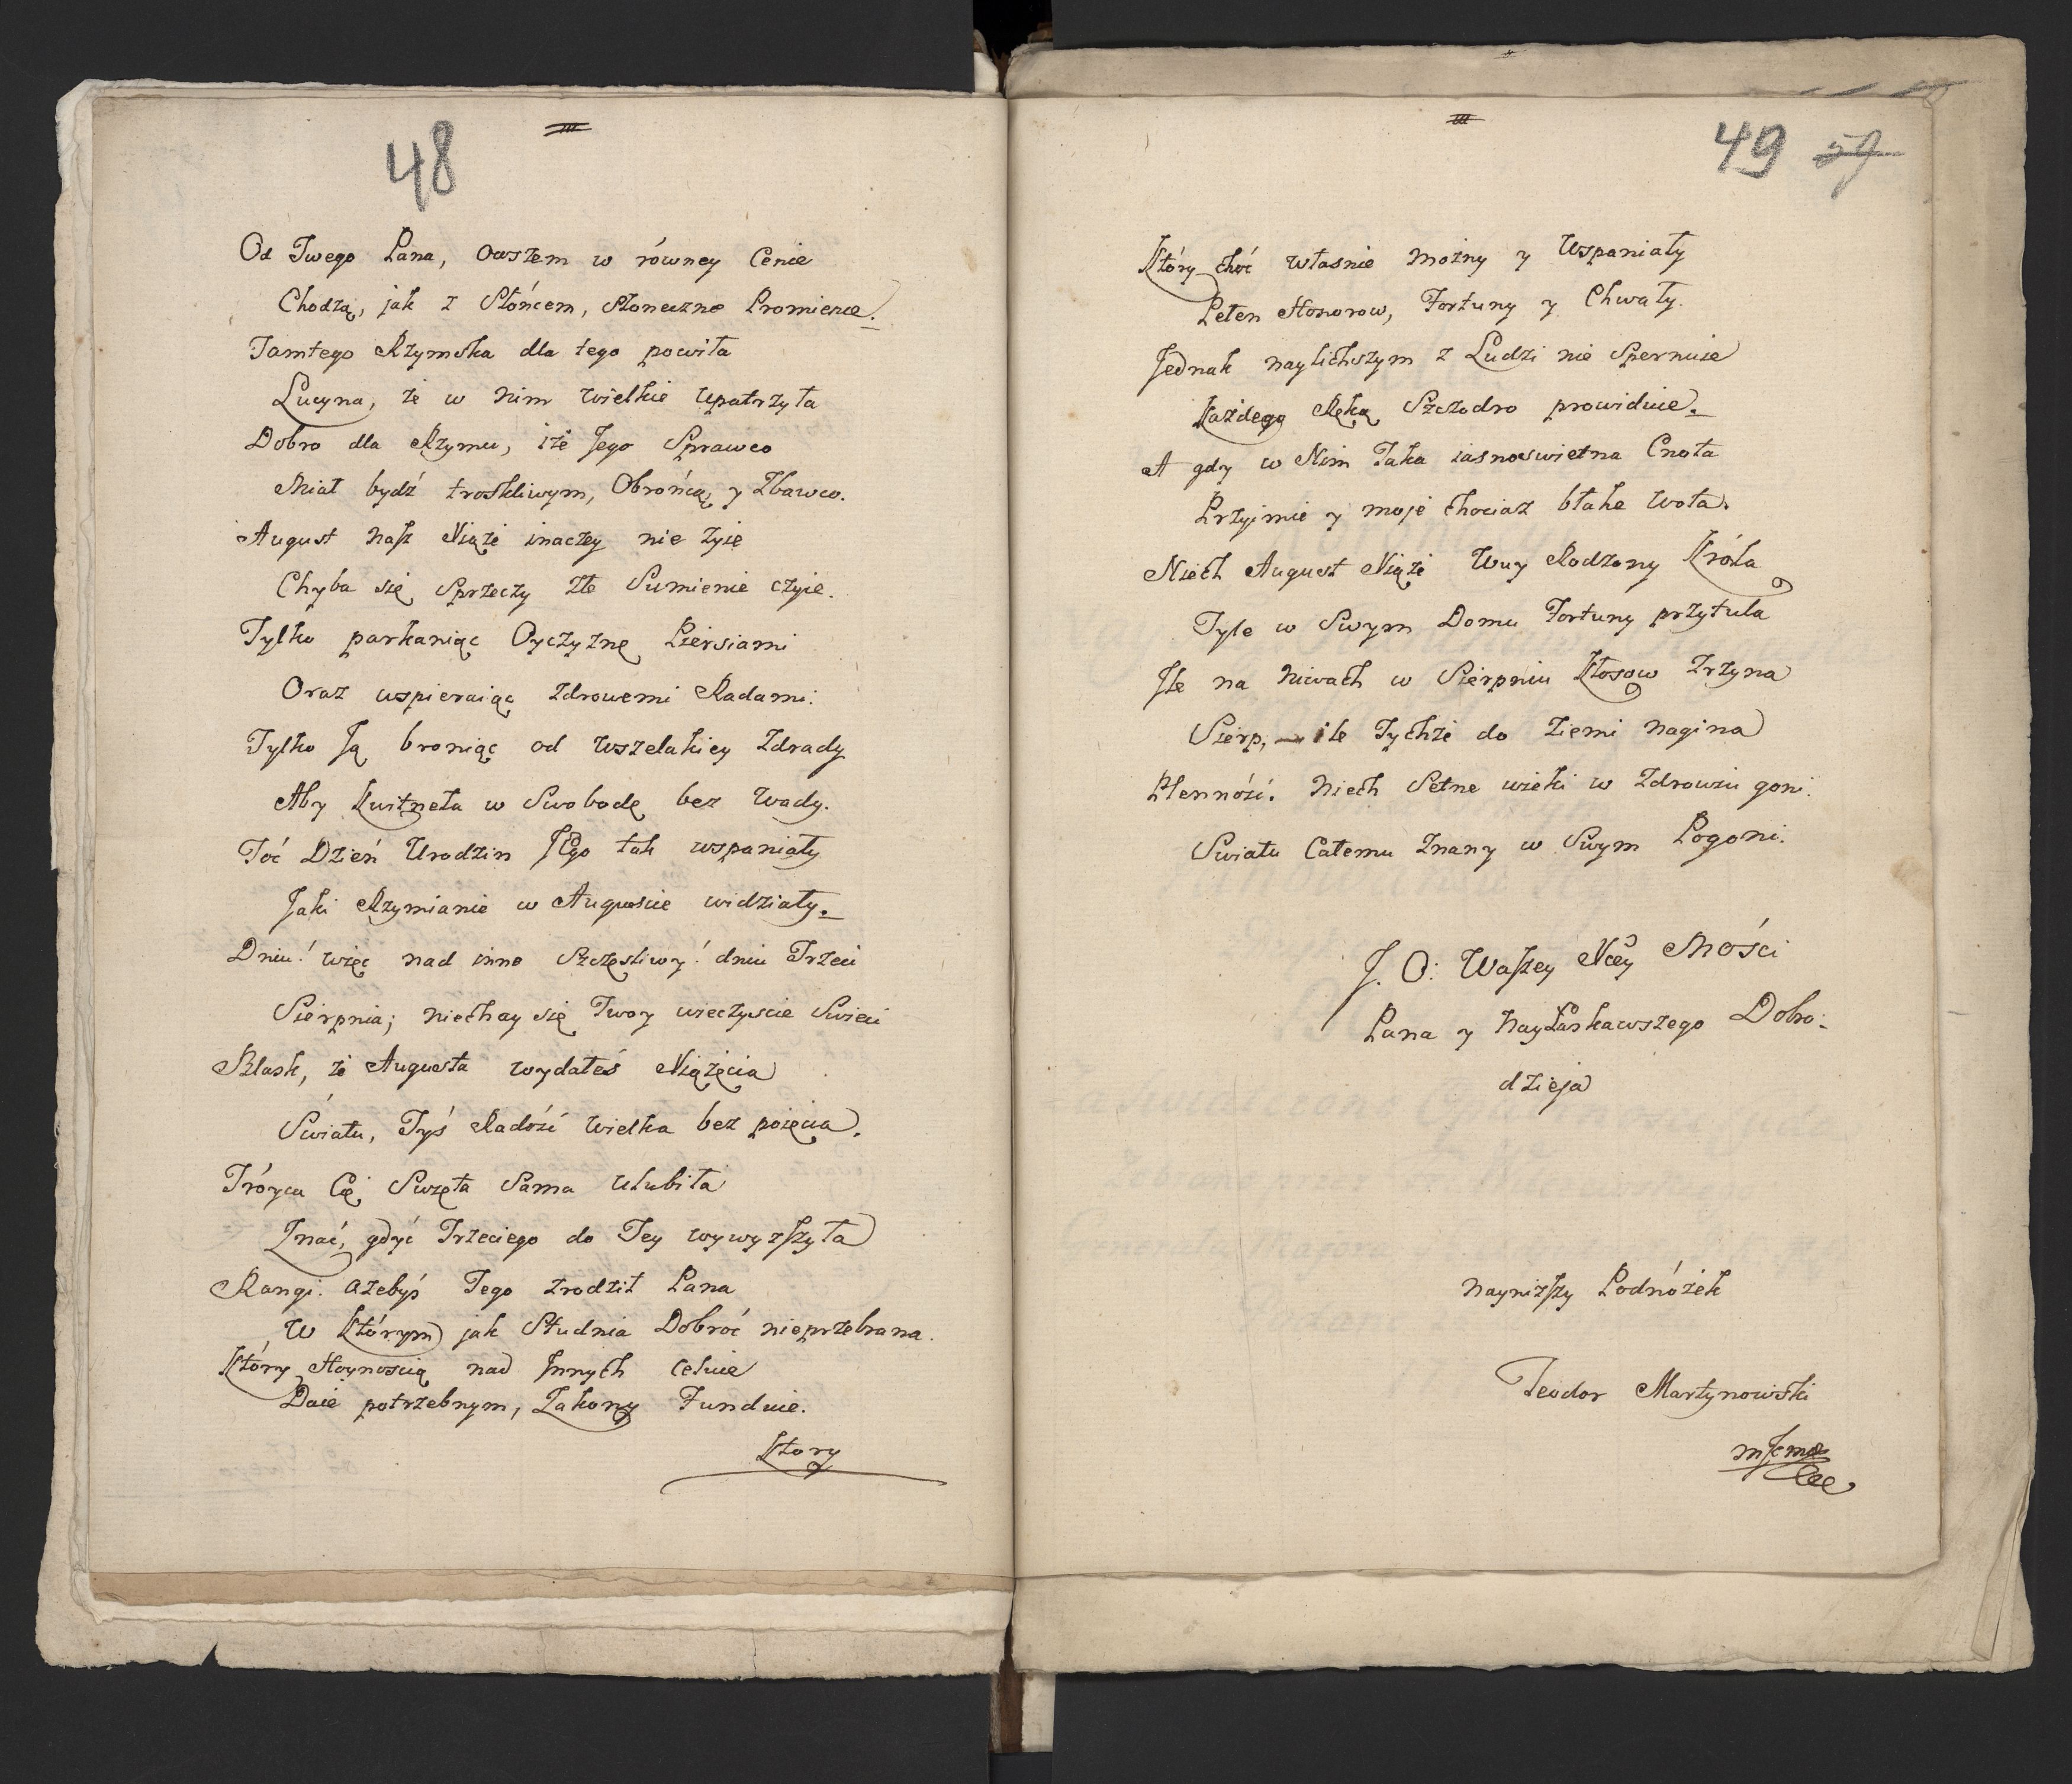 48
Od Twego Pana, Owszem w równey Cenie
Chodzą, jak z Słońcem, słoneczne Promienie.
Tamtego Rzymska dla tego powiła
Lucyna, że w nim wielkie upatrzyła
Dobro dla Rzymu, iże Jego Sprawco
Miał bydź troskliwym, Obrońcą, y Zbawco.
August nasz Xiąże inaczey nie żyie
Chyba się sprzeczy złe Sumienie czyie.
Tylko parkaniąc Oyczyznę Piersiami
Oraz wspieraiąc zdrowemi Radami:
Tylko Ją broniąc od wszelakiey Zdrady
Aby kwitneła w Swobodę bez Wady.
Toć Dzień Urodzin JEgo tak wspaniały
Jaki Rzymianie w Auguście widziały.
Dniu! więc nad inne szczęśliwy! dniu Trzeci
Sierpnia; niechay się Twoy wieczyscie Swieci
Blask, że Augusta wydałeś Xiążęcia
Światu, Tyś Radość wielka bez poięcia.
Tróyca Cię Swięta Sama ulubiła
Znać, gdyć Trzeciego do Tey wywyzszyła
Rangi. ażebyś Tego zrodził Pana
W którym jak Studnia Dobroć nieprzebrana.
Który Hoynoscią nad Jnnych celuie
Daie potrzebnym, Zakony Funduie.
Ktory
49 59
Który choć własnie możny y Wspaniały
Pełen Honorow, Fortuny y Chwały.
Jednak naylichszym z Ludzi nie Spernuie
Każdego Ręką Szczodro prowiduie.
A gdy w Nim Taka iasnoswietna Cnota
Przyimie y moje chociaz błahe wota.
Niech August Xiąże Wuy Rodzony Króla
Tyle w Swym Domu Fortuny przytula
Jle na niwach w Sierpniu Kłosow Zrzyna
Sierp, ile Tychże do Ziemi nagina
Plenność. Niech Setne wieki w Zdrowiu goni.
Swiatu Całemu Znany w Swym Pogoni.
J. O: Waszey Xcey Mości
Pana y NayŁaskawszego Dobro-
dzieja
Nayniższy Podnóżek
Teodor Martynowski